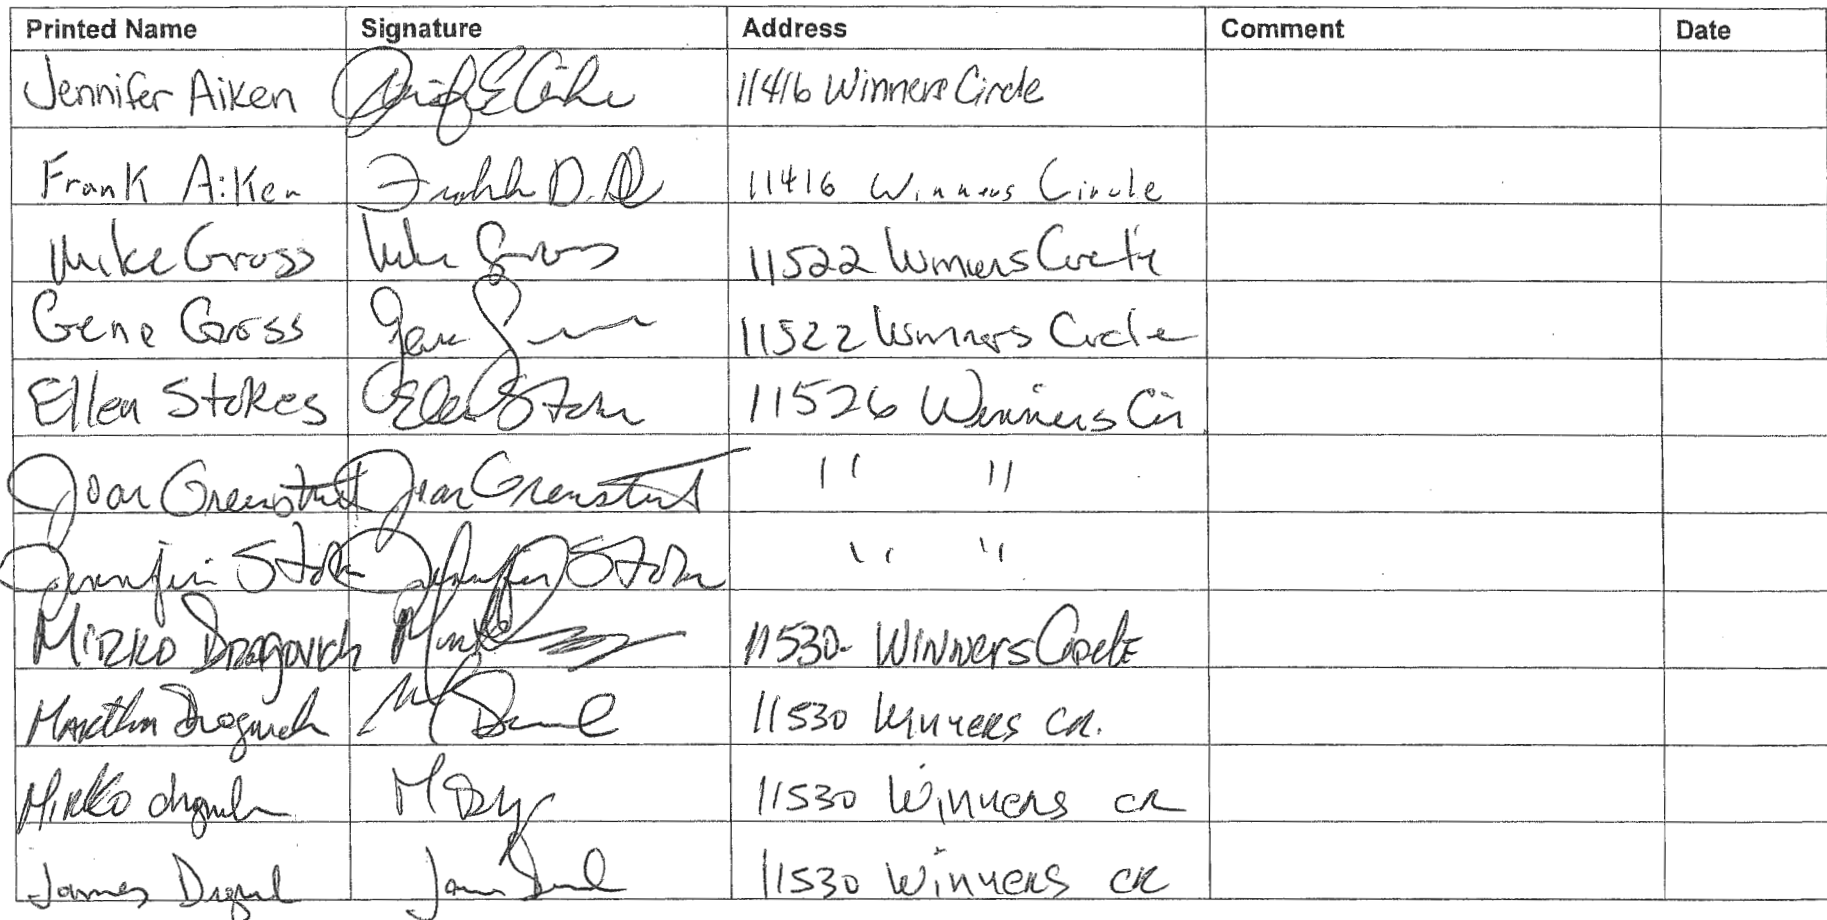 Printed Name Signature Address Comment Date
Jennifer Aiken 11416 Winners Circle
Frank Aiken Frank D. 11416 Winners Circle
Mike Gross Mike Gross 11522 Winners Circle
Gene Gross Gene 11522 Winners Circle
Ellen Stokes Ellen Stokes 11526 Winners Cir
Joan Joan " "
Jennifer Stokes Jennifer Stokes " "
Mirko Dragovich 11530- Winners Circle
Martha Dragovich 11530 Winners CR.
Mirko 11530 Winners CR
James James 11530 Winners CR